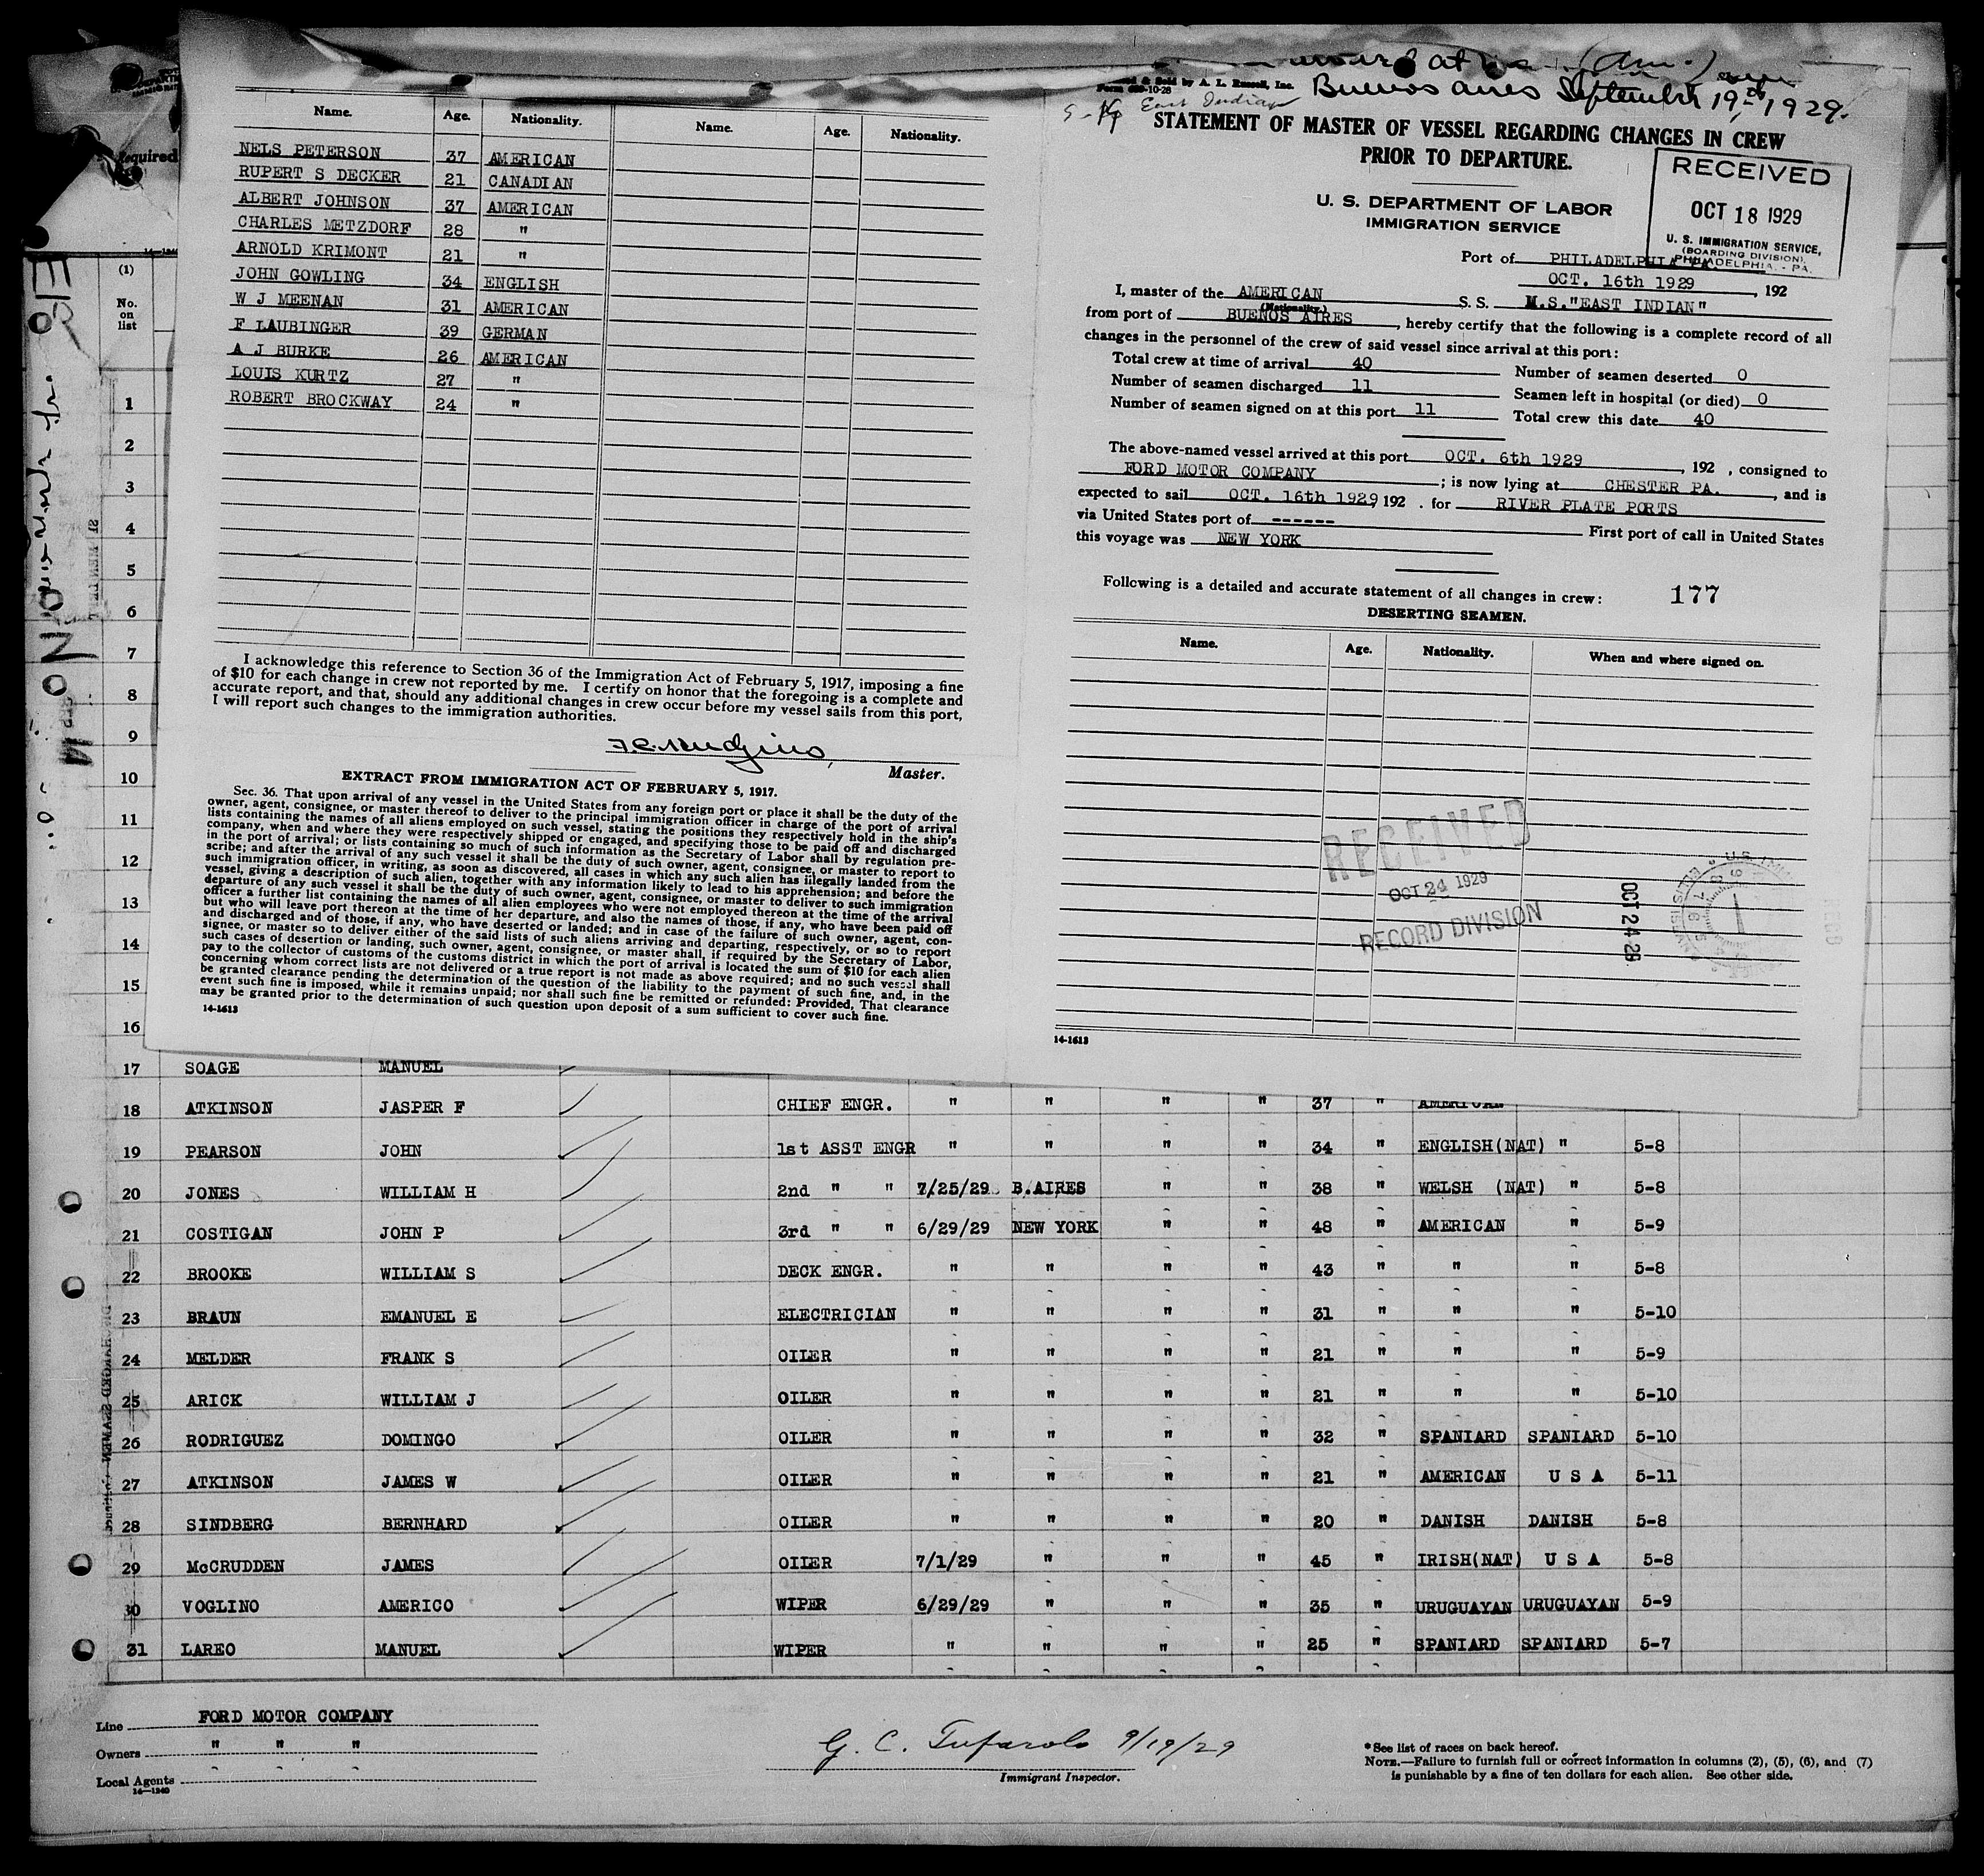 Name. Age. Nationality. Name. Age. Nationality.
NELS PETERSON 37 AMERICAN
RUPERT S DECKER 21 CANADIAN
ALBERT JOHNSON 37 AMERICAN
CHARLES METZDORF 28 "
ARNOLD KRIMONT 21 "
JOHN GOWLING 34 ENGLISH
W J MEENAN 31 AMERICAN
F LAUBINGER 39 GERMAN
A J BURKE 26 AMERICAN
LOUIS KURTZ 27 "
ROBERT BROCKWAY 24 "
I acknowledge this reference to Section 36 of the Immigration Act of February 5, 1917, imposing a fine
of $10 for each change in crew not reported by me. I certify on honor that the foregoing is a complete and
accurate report, and that, should any additional changes in crew occur before my vessel sails from this port,
I will report such changes to the immigration authorities.
Master.
EXTRACT FROM IMMIGRATION ACT OF FEBRUARY 5, 1917.
Sec. 36. That upon arrival of any vessel in the United States from any foreign port or place it shall be the duty of the
owner, agent, consignee, or master thereof to deliver to the principal immigration officer in charge of the port of arrival
lists containing the names of all aliens employed on such vessel, stating the positions they respectively hold in the ship's
company, when and where they were respectively shipped or engaged, and specifying those to be paid off and discharged
in the port of arrival; or lists containing so much of such information as the Secretary of Labor shall by regulation pre-
scribe; and after the arrival of any such vessel it shall be the duty of such owner, agent, consignee, or master to report to
such immigration officer, in writing, as soon as discovered, all cases in which any such alien has illegally landed from the
vessel, giving a description of such alien, together with any information likely to lead to his apprehension; and before the
departure of any such vessel it shall be the duty of such owner, agent, consignee, or master to deliver to such immigration
officer a further list containing the names of all alien employees who were not employed thereon at the time of the arrival
but who will leave port thereon at the time of her departure, and also the names of those, if any, who have been paid off
and discharged and of those, if any, who have deserted or landed; and in case of the failure of such owner, agent, con-
signee, or master so to deliver either of the said lists of such aliens arriving and departing, respectively, or so to report
such cases of desertion or landing, such owner, agent, consignee, or master shall, if required by the Secretary of Labor,
pay to the collector of customs of the customs district in which the port of arrival is located the sum of $10 for each alien
concerning whom correct lists are not delivered or a true report is not made as above required; and no such vessel shall
be granted clearance pending the determination of the question of the liability to the payment of such fine, and, in the
event such fine is imposed, while it remains unpaid; nor shall such fine be remitted or refunded: Provided, That clearance
may be granted prior to the determination of such question upon deposit of a sum sufficient to cover such fine.
14-1613
& Sold by A. L. Russell, Inc.
Buenos Aires September 19, 1929.
East Indian
STATEMENT OF MASTER OF VESSEL REGARDING CHANGES IN CREW
PRIOR TO DEPARTURE.
U. S. DEPARTMENT OF LABOR
IMMIGRATION SERVICE
RECEIVED
OCT 18 1929
U. S. IMMIGRATION SERVICE,
(BOARDING DIVISION),
PHILADELPHIA, - PA.
Port of PHILADELPHIA
OCT. 16th 1929, 192
I, master of the AMERICAN S. S. M.S."EAST INDIAN"
(Nationality.)
from port of BUENOS AIRES, hereby certify that the following is a complete record of all
changes in the personnel of the crew of said vessel since arrival at this port:
Total crew at time of arrival 40 Number of seamen deserted 0
Number of seamen discharged 11 Seamen left in hospital (or died) 0
Number of seamen signed on at this port 11 Total crew this date 40
The above-named vessel arrived at this port OCT. 6th 1929, 192 , consigned to
FORD MOTOR COMPANY; is now lying at CHESTER PA., and is
expected to sail OCT. 16th 1929, 192 . for RIVER PLATE PORTS
via United States port of ------ First port of call in United States
this voyage was NEW YORK
Following is a detailed and accurate statement of all changes in crew: 177
DESERTING SEAMEN.
Name. Age. Nationality. When and where signed on.
RECEIVED
OCT 24 1929
RECORD DIVISION
OCT 24 29
14-1613
Required
(1)
No.
on
list
1
2
3
4
5
6
7
8
9
10
11
12
13
14
15
16
17 SOAGE MANUEL
18 ATKINSON JASPER F CHIEF ENGR. " " " " 37 " AMERICAN
19 PEARSON JOHN 1st ASST ENGR " " " " 34 " ENGLISH(NAT) " 5-8
20 JONES WILLIAM H 2nd " " 7/25/29 B.AIRES " " 38 " WELSH (NAT) " 5-8
21 COSTIGAN JOHN P 3rd " " 6/29/29 NEW YORK " " 48 " AMERICAN " 5-9
22 BROOKE WILLIAM S DECK ENGR. " " " " 43 " " " 5-8
23 BRAUN EMANUEL E ELECTRICIAN " " " " 31 " " " 5-10
24 MELDER FRANK S OILER " " " " 21 " " " 5-9
25 ARICK WILLIAM J OILER " " " " 21 " " " 5-10
26 RODRIGUEZ DOMINGO OILER " " " " 32 " SPANIARD SPANIARD 5-10
27 ATKINSON JAMES W OILER " " " " 21 " AMERICAN U S A 5-11
28 SINDBERG BERNHARD OILER " " " " 20 " DANISH DANISH 5-8
29 McCRUDDEN JAMES OILER 7/1/29 " " " 45 " IRISH(NAT) U S A 5-8
30 VOGLINO AMERICO WIPER 6/29/29 " " " 35 " URUGUAYAN URUGUAYAN 5-9
31 LAREO MANUEL WIPER " " " " 25 " SPANIARD SPANIARD 5-7
Line FORD MOTOR COMPANY
Owners " " "
Local Agents
14-1240
G. C. Tufarolo 9/19/29
Immigrant Inspector.
*See list of races on back hereof.
NOTE.—Failure to furnish full or correct information in columns (2), (5), (6), and (7)
is punishable by a fine of ten dollars for each alien. See other side.